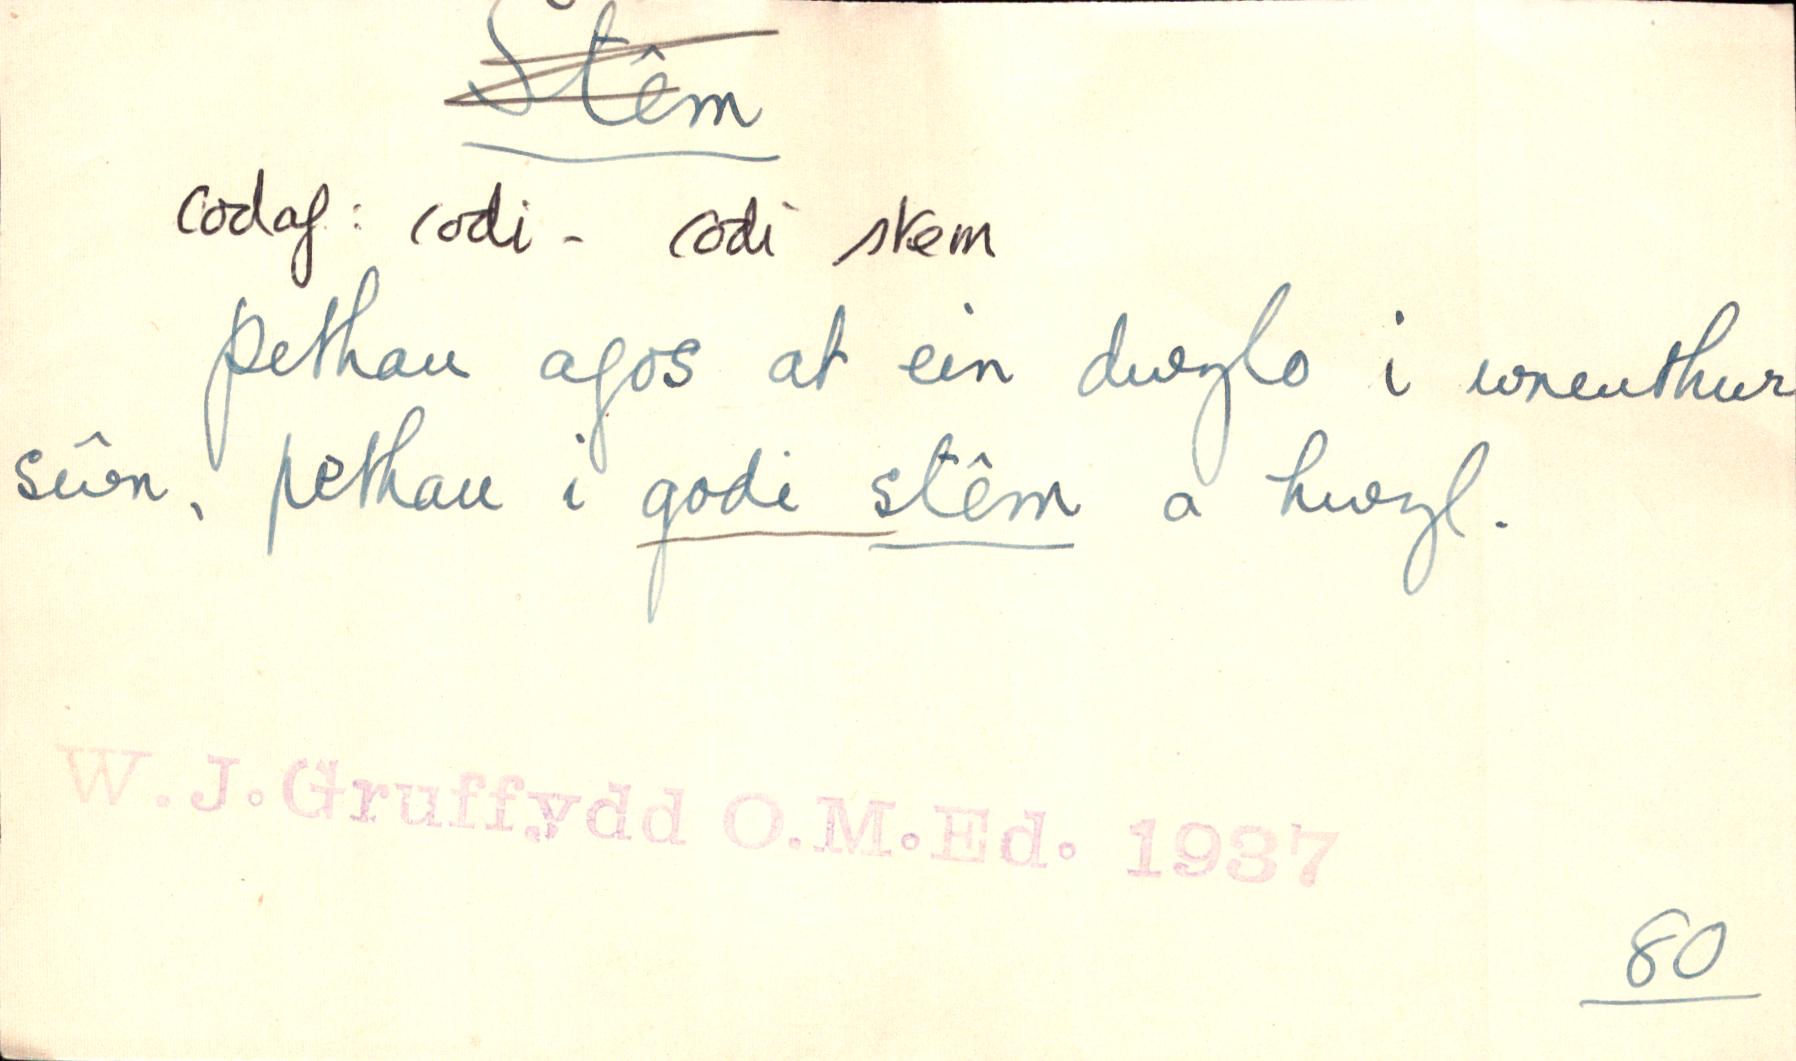 Stêm
codaf: codi - codi stem
pethau agos at ein dwylo i wneuthur
sŵn, pethau i godi stêm a hwyl.
W. J. Gruffydd O.M.Ed. 1937
80